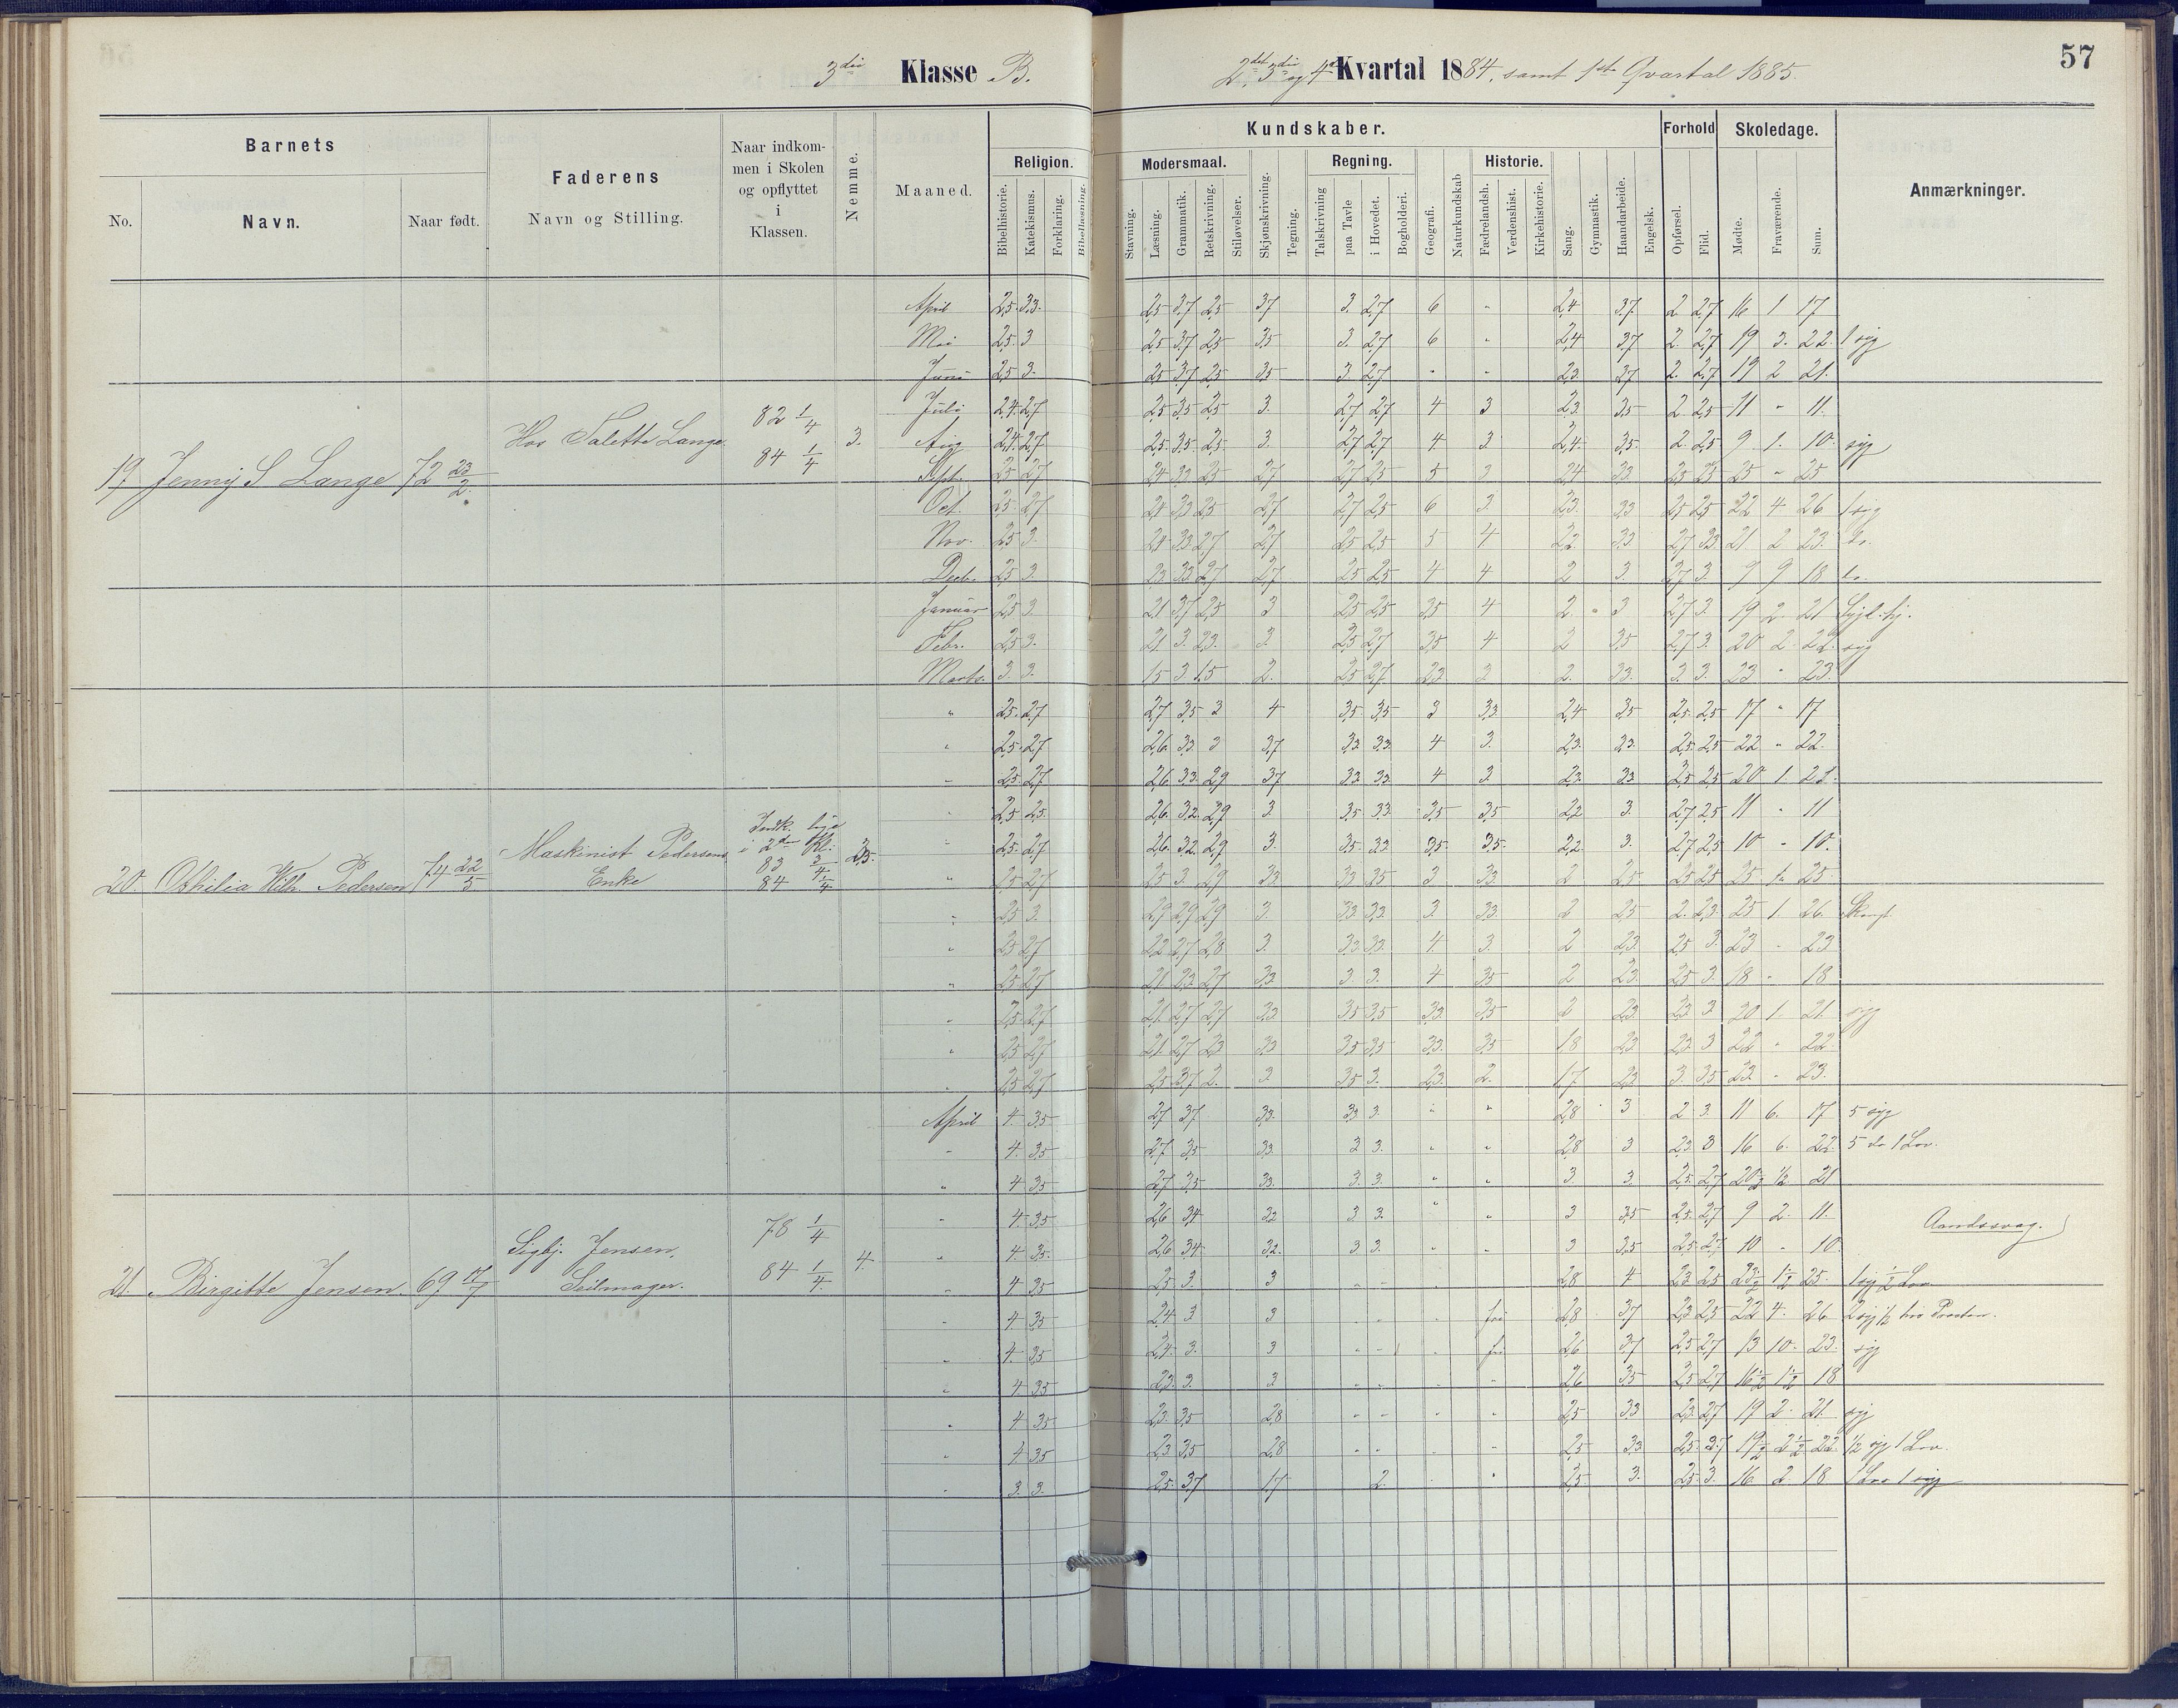 57
3die Klasse B.
2det 3die og 4de Kvartal 1884, samt 1ste Qvartal 1885.
Barnets
Faderens
Navn og Stilling.
Naar indkommen i Skolen og opflyttet i Klassen.
Nemme.
Maaned.
No.
Navn.
Naar født.
Religion.
Bibelhistorie.
Katekismus.
Forklaring.
Bibellæsning.
Kundskaber.
Modersmaal.
Stavning.
Læsning.
Grammatik.
Retskrivning.
Stiløvelser.
Skjønskrivning.
Tegning.
Regning.
Talskrivning
paa Tavle
i Hovedet.
Bogholderi.
Geografi.
Naturkundskab
Historie.
Fædrelandsh.
Verdenshist.
Kirkehistorie.
Sang.
Gymnastik.
Haandarbeide.
Engelsk.
Forhold
Opførsel.
Flid.
Skoledage.
Mødte.
Fraværende.
Sum.
Anmærkninger.
19 Jenny S Lange 72 23/2.
Hos Talette Lange.
82 1/4
84 1/4
3.
April 2,5 3,3 2,5 3,7 2,5 3,7 3. 2,7 6 " 2,4 3,7 2 2,7 16 1 17
Mai 2,5 3 2,5 3,7 2,5 3,5 3. 2,7 6 " 2,4 3,7 2 2,7 19 3. 22. 1 syg
Juni 2,5 3. 2,5 3,7 2,5 3,5 3 2,7 " " 2,3 3,7 2. 2,7 19 2 21.
Juli 2,4 2,7 2,5 3,5 2,5 3. 2,7 2,7 4 3 2,3 3,5 2 2,5 11 " 11.
Aug 2,4 2,7 2,5 3,5 2,5 3. 2,7 2,7 4 3 2,4 3,5 2 2,5 9 1. 10. syg
Septr. 2,5 2,7
Oct. 2,5 2,7 22 4 26 1 syg
Nov. 2,5 3. 21 2 23. do.
Decbr. 2,5 3. 9 9 18 do.
Januar 2,5 3. 19 2 21
Febr. 2,5 3. 20 2 22 syg
Marts. 3. 3. 23 " 23.
20. Othilia Wilh. Pedersen 74 22/5
Maskinist Pedersens
Enke
Indk. lige
i 2den Kl.
83 3/4
84 1/4
2,5.
2,5 2,7 2,7 3,5 3 4 3,5 3,5 3 3,3 2,4 3,5 2,5 2,5 17 " 17
2,5 2,7 2,6 3,3 3 3,7 3,3 3,3 4 3. 2,3 3,3 2,5 2,5 22 " 22.
2,5 2,7 2,6 3,3 2,9 3,7 3,3 3,3 4 3. 2,3 3,3 2,5 2,5 20 1. 21.
2,5 2,5 2,6 3,2 2,9 3 3,5 3,3 3,5 3,5 2,2 3. 2,7 2,5 11 " 11
2,5 2,7 2,6 3,2 2,9 3. 3,5 3,3 3,5 3,5 2,2 3. 2,7 2,5 10 " 10.
2,5 3. 2,9 2,9 2,9 3. 3,3 3,3 3 3,3 2 2,5 2. 2,3 25 1. 26
2,5 2,7 2,2 2,7 2,8 3. 3,3 3,3 4 3. 2 2,3 2,5 3. 23 " 23
2,5 2,7 2,1 2,3 2,7 3,3 3 3. 4 3,5 2 2,3 2,5 3. 18 " 18
2,5 2,7 2,1 2,7 2,7 3,3 3,5 3,5 3,3 3,5 2 2,3 2,3 3 20 1. 21 syg
2,5 2,7 2,1 2,7 2,3 3,3 3,5 3,5 3,3 3,5 1,8 2,3 2,3 3 22 " 22
21. Birgitte Jensen. 69 17/7
Sigbj. Jensen.
Seilmager.
78 1/4
84 1/4.
4.
April 4. 3,5 2,7 3,7 3,3 3,3 3. " " 2,8 3 2 3. 11 6. 17 5 syg
4. 3,5 2,7 3,5 3,3 3 3. " " 2,8 3 2,3 3 16 6. 22. 5 do 1 Lov.
4 3,5 2,7 3,5 3,3 3. 3. " " 3 3. 2,5 2,7 20 1/2 1/2 21
4. 3,5 2,6 3,4 3,2 3 3. " " 3 3,5 2,5 2,7 9 2. 11.
Aandssvag.
4. 3,5 2,6 3,4 3,2 3 3. " " 3 3,5 2,5 2,7 10 " 10.
4 3,5 2,5 3. 3 2,8 4 2,3 2,5 23 1/2 1 1/2 25. 1 syg 1/2 Lov
4 3,5 2,4 3 3 fri 2,8 3,7 2,3 2,5 22 4. 26 2 syg 1/2 hos Præsten.
4. 3,5 2,4 3. 3 fri 2,6 3,7 2,5 2,7 13 10. 23. syg
4 3,5 2,3 3. 3 2,6 3,5 2,5 2,7 16 1/2 1 1/2 18
4 3,5 2,3 3,5 2,8 2,5 3,3 2,3 2,7 19 2. 21. syg
4 3,5 2,3 3,5 2,8 2,5 3,3 2,5 2,7 19 1/2 2 1/2 22 1/2 syg 1 Lov.
3. 3. 2,5 3,7 1,7 2. 2,5 3. 2,5 3. 16 2 18 1 Lov 1 syg